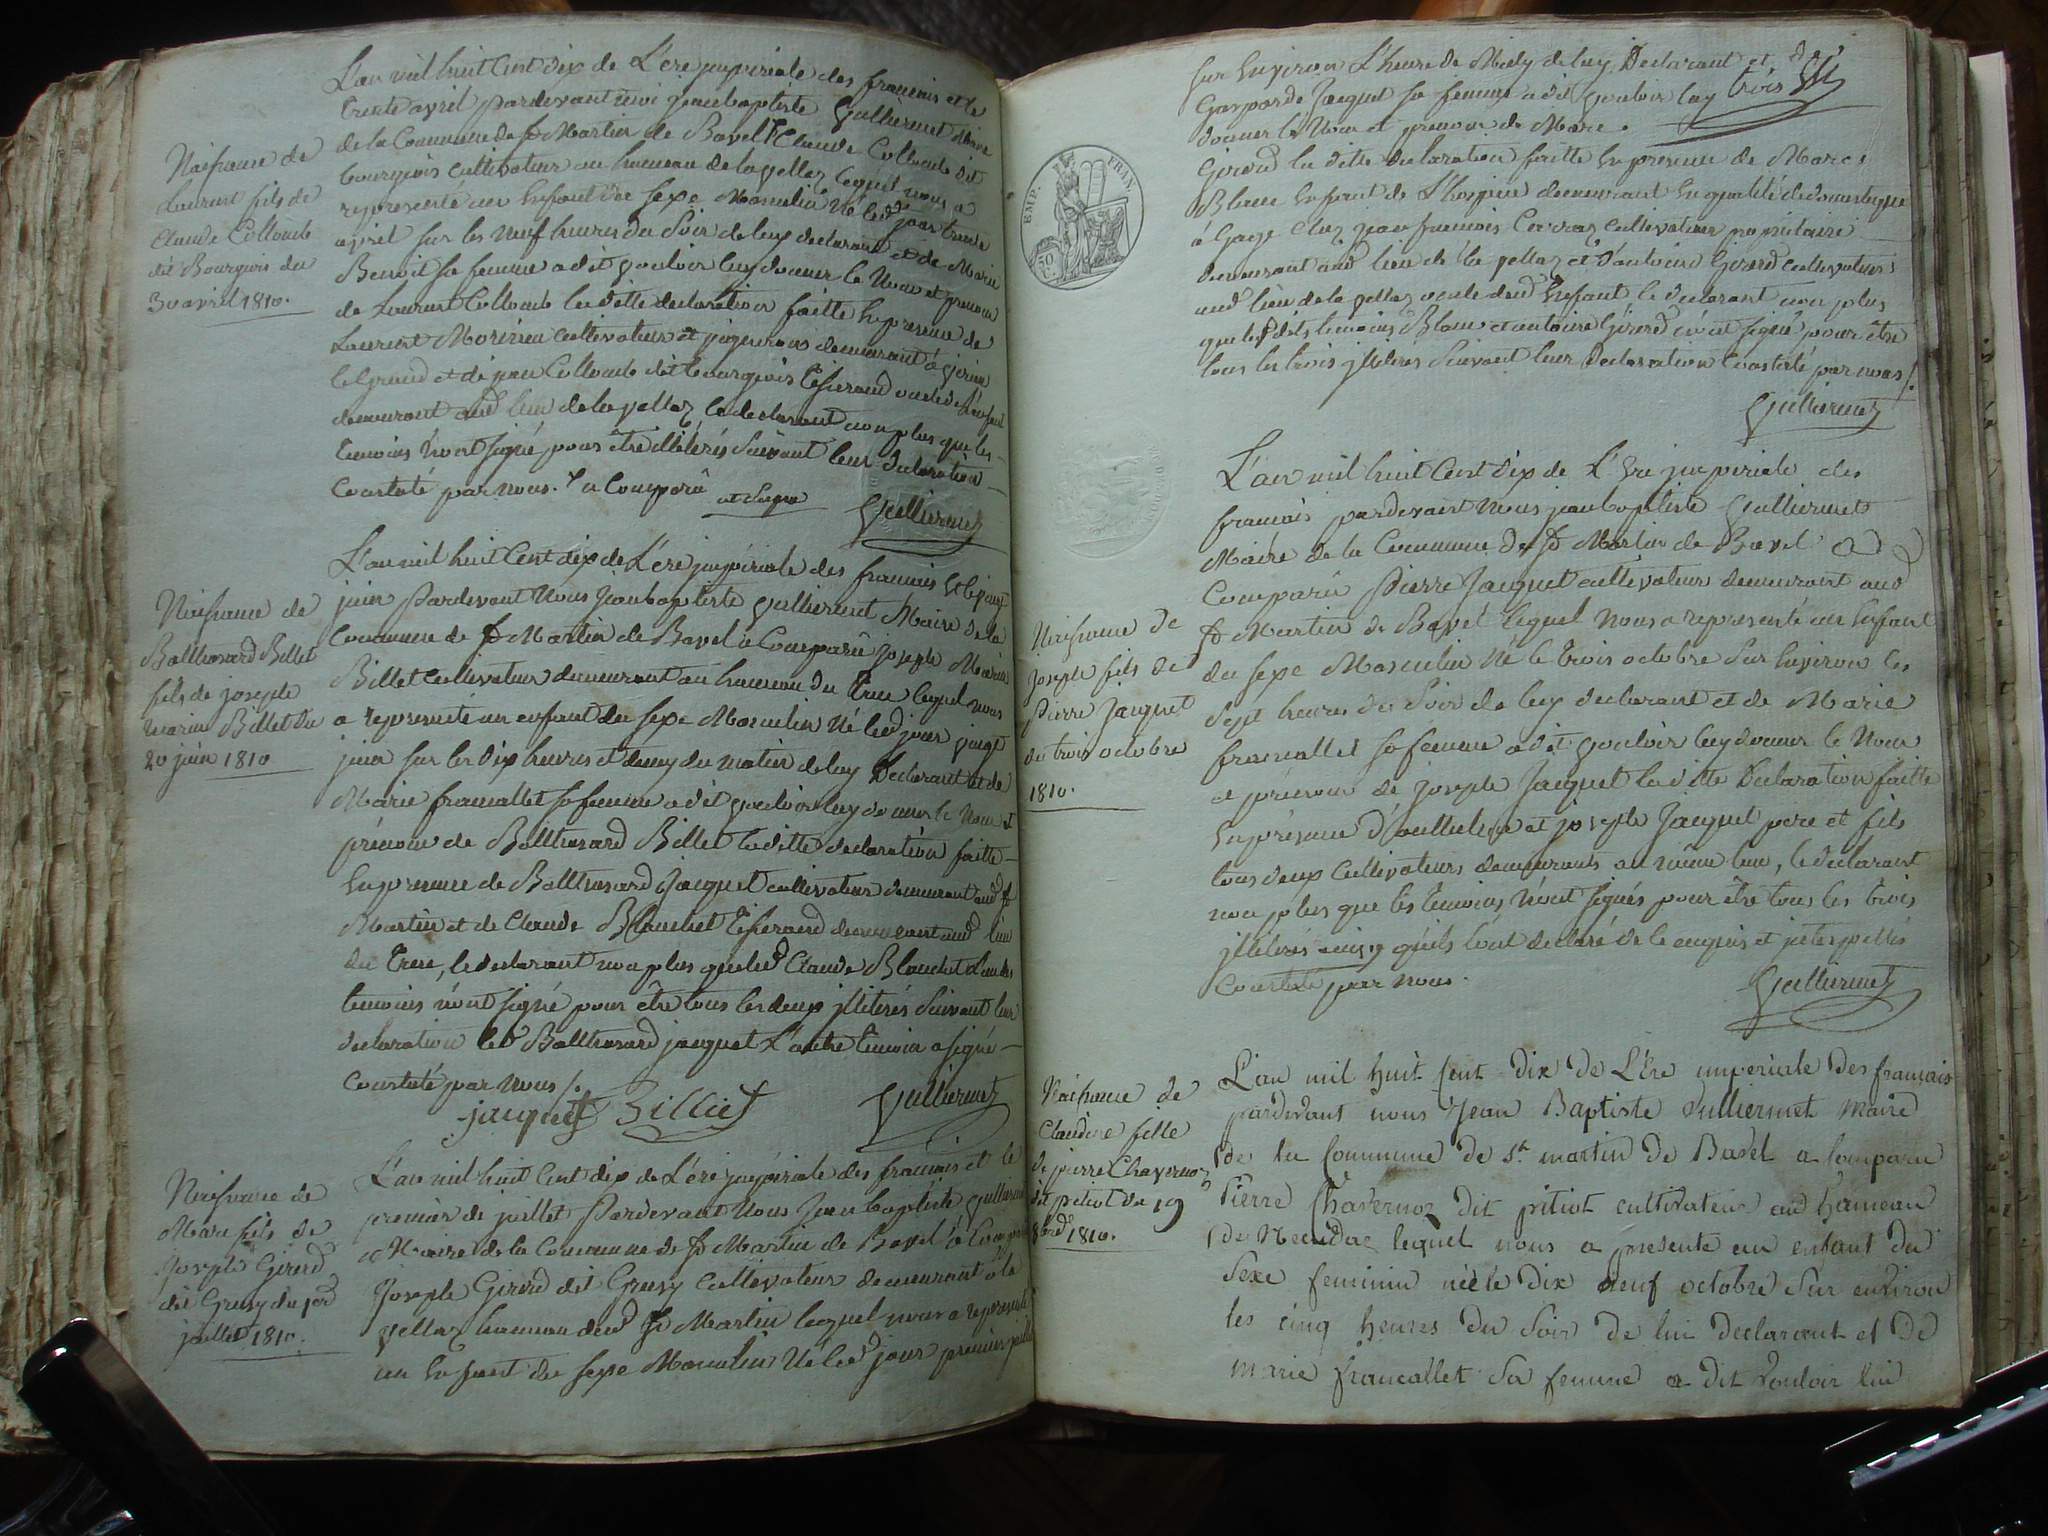 L'an mil huit Cent dix de L'ère jmpériale des francais et le
trente avril pardevant nous jean baptiste Vulliermet Maire
de la Commune de St Martin de Bavel Claude Collomb dit
bourgeois cultivateur au hameau de la vellaz lequel nous a
representé un Enfant du sexe Masculin Né led jour trente
avril sur les Neuf heures du Soir de luy declarant et de Marie
Benoit sa femme a dit vouloir luy donner le Nom et prenom
de Laurent Collomb la ditte declaration faitte En presence de
Laurent cultivateur et vigneron demeurant à virieu
le Grand et de jean Collomb dit bourgeois tisserand
demeurant aud lieu de la vellaz le declarant non plus que les
temoins n'ont signé pour être illiterés Suivant leur declaration
Constaté par nous. a Comparû
Vulliermet
Naissance de
Laurent fils de
Claude Collomb
dit Bourgeois du
30 avril 1810.
L'an mil huit Cent dix de L'ère jmpériale des francais et le vingt
juin Pardevant Nous Jean baptiste Vulliermet Maire de la
Commune de St Martin de Bavel a Comparû joseph Marin
Billet cultivateur demeurant au hameau du lequel nous
a representé un enfant du sexe Masculin Né led jour vingt
juin sur les Dix heures et demy du matin de luy Declarant et de
Marie francallet sa femme a dit vouloir luy donner le Nom et
prénom de Balthasard Billet laditte declaration faitte
En presence de Balthasard Jacquet cultivateur demeurant aud St
Martin et de Claude Blanchet tisserand demeurant aud lieu
du le declarant non plus que led Claude Blanchet
temoins n'ont signé pour être tous les deux jlliterés Suivant leur
declaration led Balthasard jacquet L'autre temoin a signé
Constaté par nous /.
jacquet Billiet Vulliermet
Naissance de
Balthasard Billet
fils de joseph
marin Billet du
20 juin 1810
L'an mil huit Cent dix de L'ére jmpériale des francais et le
premier de juillet Pardevant Nous Jean baptiste Vulliermet
Maire de la Commune de St Martin de Bavel a Comparu
Joseph Girerd dit Grusy Cultivateur demeurant à la
vellaz hameau dud St Martin lequel nous a representé
un Enfant du sexe Masculin Né led jour premier juillet
Naissance de
Marc fils de
Joseph Girerd
dit Grusy du 1er
juillet 1810.
sur Environ L'heure de Midy de luy Declarant et de
Gasparde Jacquet sa femme a dit vouloir luy trois
donner le Nom et prenom de Marc
Girerd la ditte declaration faitte En presence de Marc
Blanc Enfant de L'hospice demeurant En qualité de domestique
à Gage Chez jean francois cultivateur propriétaire
demeurant aud lieu de la vellaz et d'antoine Girerd cultivateur
aud lieu de la vellaz oncle dud Enfant le declarant non plus
que les dits temoins Blanc et antoine Girerd n'ont signé pour être
tous les trois jlliteres Suivant leur declaration Constaté par nous /.
Vulliermet
EMP. FRAN.
50 C.
L'an mil huit Cent dix de L'Ere jmpériale des
francais pardevant Nous jean baptiste Vulliermet
Maire de la Commune de St Martin de Bavel a
Comparû Pierre Jacquet cultivateur demeurant aud
St Martin de Bavel lequel Nous a representé un Enfant
du sexe Masculin Né le trois octobre Sur Environ les
Sept heures du Soir de luy declarant et de Marie
francallet sa femme a dit vouloir luy donner le Nom
et prénom de joseph Jacquet la ditte Declaration faitte
En présence d'anthelme et joseph Jacquet pere et fils
tous deux Cultivateurs demeurants au même lieu, le declarant
non plus que les temoins n'ont signés pour être tous les trois
jlliterés ainsy qu'ils l'ont declaré de le enquis et jnterpellés
Constaté par nous.
Vulliermet
Naissance de
Joseph fils de
Pierre Jacquet
du trois octobre
1810.
L'an mil huit Cent dix de L'Ere imperiale des français
pardevant nous Jean Baptiste Vulliermet maire
de la Commune de St martin de Bavel a Comparu
Pierre Chavernoz dit pitiot cultivateur au hameau
de lequel nous a presente un enfant du
Sexe feminin née le Dix neuf octobre Sur environ
les cinq heures du Soir de lui declarant et de
marie francallet Sa femme a dit vouloir lui
Naissance de
Claudine fille
de pierre Chavernoz
dit petiot du 19
8bre 1810.